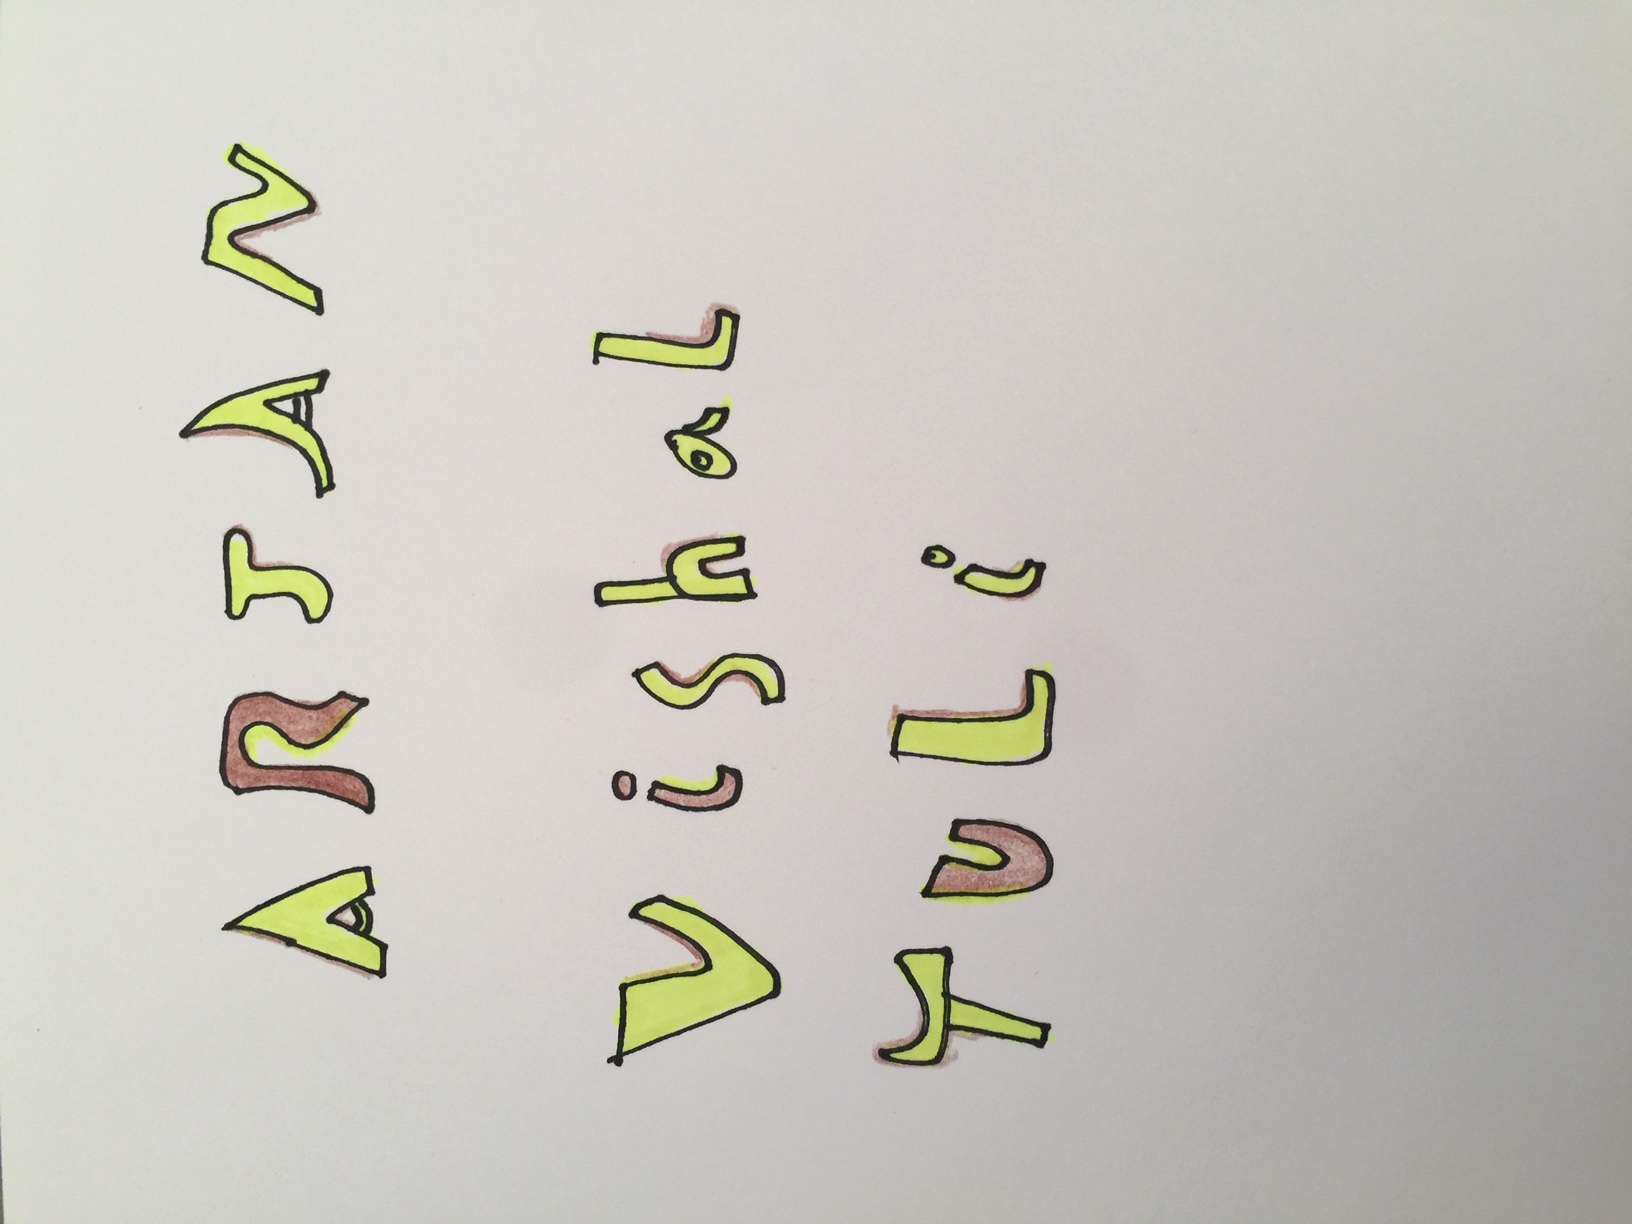 ARJAN
Vishal
TULi